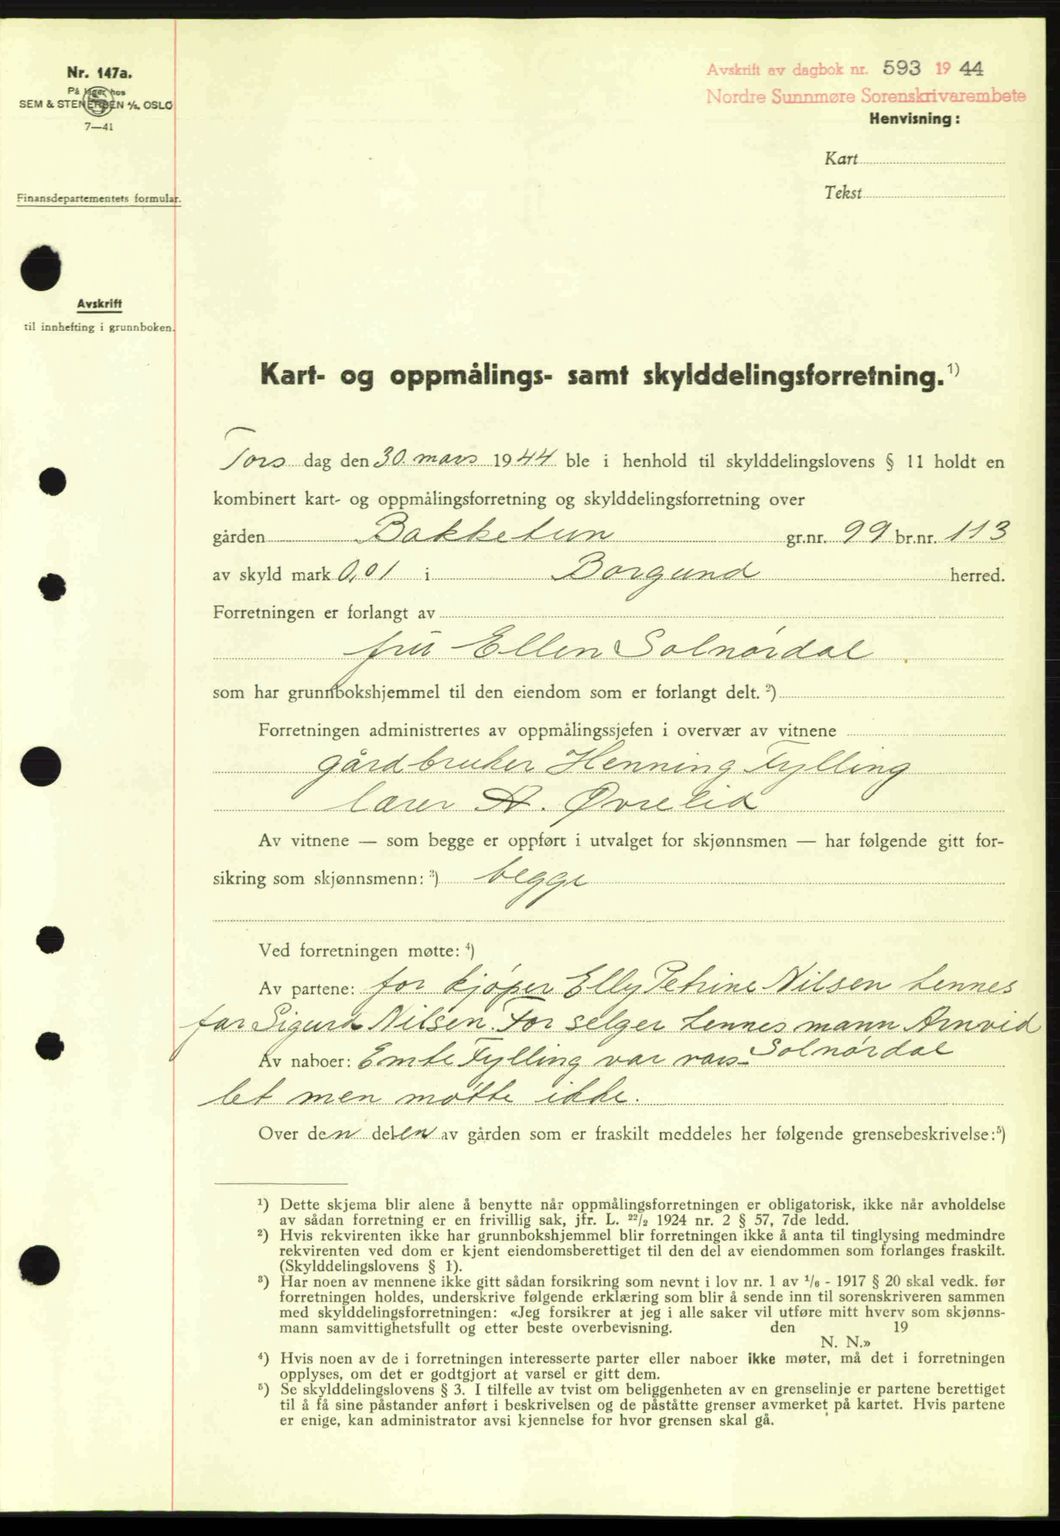 Nr. 147a.
På lager hos
SEM & STENERSEN A/S, OSLO
7—41
Finansdepartementets formular.
Avskrift
til innhefting i grunnboken.
Avskrift av dagbok nr. 593 19 44
Nordre Sunnmøre Sorenskrivarembete
Henvisning:
Kart
Tekst
Kart- og oppmålings- samt skylddelingsforretning.¹)
Tors dag den 30. mars 1944 ble i henhold til skylddelingslovens § 11 holdt en
kombinert kart- og oppmålingsforretning og skylddelingsforretning over
gården Bakketun gr.nr. 99 br.nr. 113
av skyld mark 0,01 i Borgund herred.
Forretningen er forlangt av
fru Ellen Solnørdal
som har grunnbokshjemmel til den eiendom som er forlangt delt.²)
Forretningen administrertes av oppmålingssjefen i overvær av vitnene
gårdbruker Henning Fylling
lærer A. Øvrelid
Av vitnene — som begge er oppført i utvalget for skjønnsmen — har følgende gitt for-
sikring som skjønnsmenn:³) begge
Ved forretningen møtte:⁴)
Av partene: for kjøper Elly Petrine Nilsen hennes
far Sigurd Nilsen. For selger hennes mann Arnvid
Solnørdal
Av naboer: Emte Fylling var vars-
let men møtte ikke.
Over den delen av gården som er fraskilt meddeles her følgende grensebeskrivelse:⁵)
¹) Dette skjema blir alene å benytte når oppmålingsforretningen er obligatorisk, ikke når avholdelse
av sådan forretning er en frivillig sak, jfr. L. ²²/₂ 1924 nr. 2 § 57, 7de ledd.
²) Hvis rekvirenten ikke har grunnbokshjemmel blir forretningen ikke å anta til tinglysing medmindre
rekvirenten ved dom er kjent eiendomsberettiget til den del av eiendommen som forlanges fraskilt.
(Skylddelingslovens § 1).
³) Har noen av mennene ikke gitt sådan forsikring som nevnt i lov nr. 1 av ¹/₆ - 1917 § 20 skal vedk. før
forretningen holdes, underskrive følgende erklæring som blir å sende inn til sorenskriveren sammen
med skylddelingsforretningen: «Jeg forsikrer at jeg i alle saker vil utføre mitt hverv som skjønns-
mann samvittighetsfullt og etter beste overbevisning. den 19
N. N.»
⁴) Hvis noen av de i forretningen interesserte parter eller naboer ikke møter, må det i forretningen
opplyses, om det er godtgjort at varsel er gitt dem.
⁵) Se skylddelingslovens § 3. I tilfelle av tvist om beliggenheten av en grenselinje er partene berettiget
til å få sine påstander anført i beskrivelsen og de påståtte grenser avmerket på kartet. Hvis partene
er enige, kan administrator avsi kjennelse for hvor grensen skal gå.